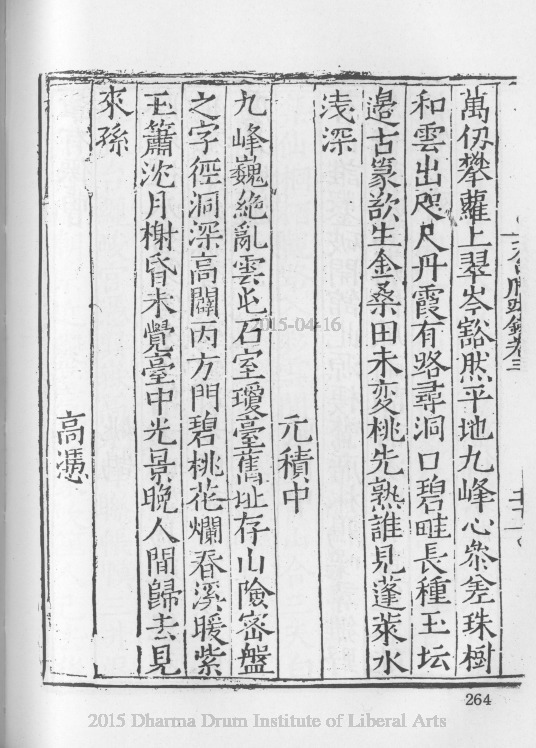 萬仭攀蘿上翠岑豁然平地九峰心叅差珠樹
和雲出咫尺丹霞有路尋洞口碧畦長種玉坛
邉古篆欲生金桑田未変桃先熟誰見蓬萊水
浅深
元積中
九峰巍絶亂雲屯石室瓊臺舊址存山險密盤
之字徑洞深高闢丙方門碧桃花爛春溪暖紫
玉簫沈月榭昏未覺臺中光景晚人間歸去見
來孫
高憑
264
2015-04-16
2015 Dharma Drum Institute of Liberal Arts